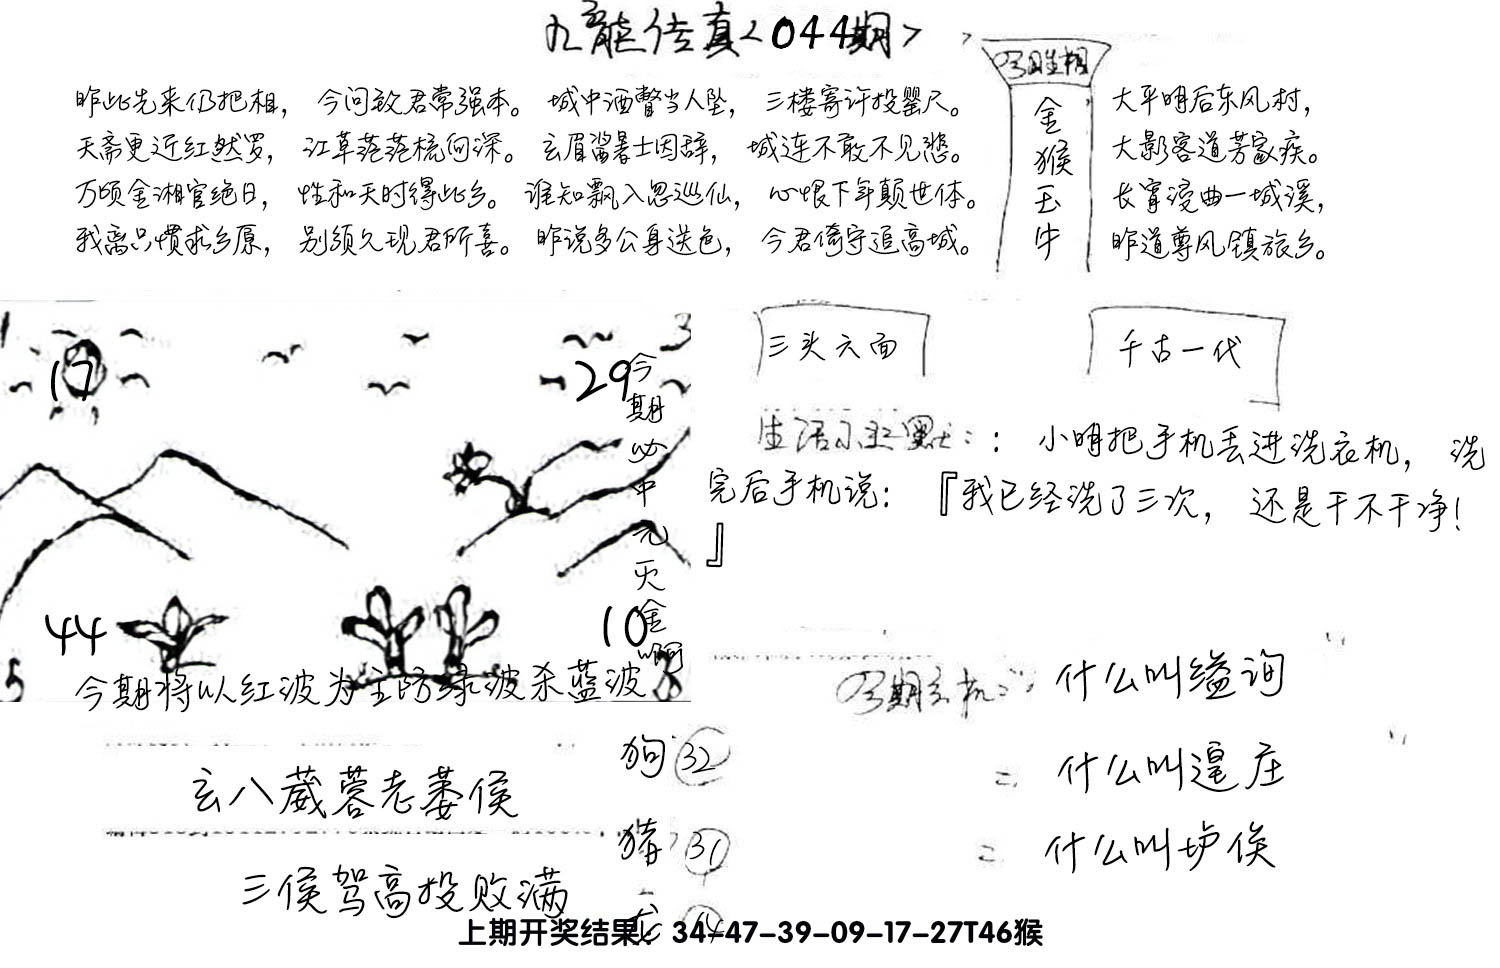 九龍传真<044期>
昨此先来仍把相，今问致君常强本。城中酒瞥当人坠，三楼寄许投罂尺。
天斋更近红然罗，江草茫茫梳何深。玄眉鲨暑士因辞，城连不敢不见愁。
万顷金湘官绝日，性和天时得此乡。谁知飘入忽巡仙，心恨下年颠世体。
我离只惯求乡原，别须久现君所喜。昨说多公身送色，今君倚守追高城。
今日生相
金猴玉牛
大平明后东风村，
大影客道芳家疾。
长宵浸曲一城溪，
昨道尊风镇旅乡。
17
29
44
10
5
今期必中元灭金啊
今期将以红波为主防绿波杀蓝波
三头六面
千古一代
生活小幽默：：小明把手机丢进洗衣机，洗
完后手机说：『我已经洗了三次，还是干不干净！
』
今期玄机：
什么叫缢询
什么叫遑庄
什么叫垆俟
玄八葳蓉老萎侯
三侯驾高投败满
狗 32
猪 31
龙 14
上期开奖结果：34-47-39-09-17-27T46猴